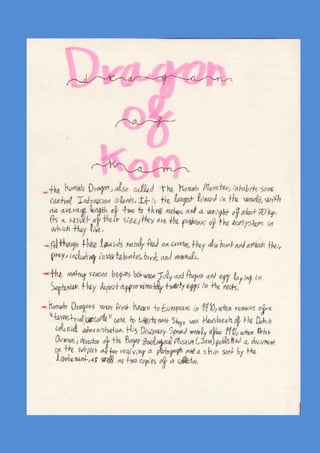 Dragon
dragon
of
of
Kom
Kom
- the Komodo Dragon, also called the Komodo Monster, inhabits some
central Indonesian islands. It is the largest lizard in the world, with
an average length of two to three meters and a weight of about 70 kg.
As a result of their size, they are the predators of the ecosystems in
which they live.
- Although these lizards mainly feed on carrion, they also hunt and ambush their
prey, including invertebrates, birds and mammals.
- the mating season begins between July and August and egg laying in
September they deposit approximately twenty eggs in the nests.
- Komodo Dragons were first known to Europeans in 1910, when rumors of a
"terrestrial crocodile" came to Lieutenant Steyn van Hensbroek of the Dutch
colonial administration. His Discovery Spread widely after 1912, when Peter
Ouwens, director of the Bogor Zoological Museum (Java) published a document
on the subject after receiving a photograph and a skin sent by the
lieutenant, as well as two copies of a collector.